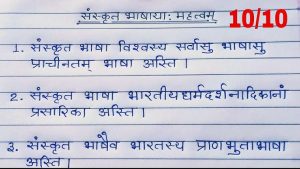 संस्कृत भाषाया: महत्वम्
10/10
1. संस्कृत भाषा विश्वस्य सर्वासु भाषासु
प्राचीनतम् भाषा अस्ति।
2. संस्कृत भाषा भारतीयधर्मदर्शनादिकानां
प्रसारिका अस्ति।
3. संस्कृत भाषैव भारतस्य प्राणभुताभाषा
अस्ति।